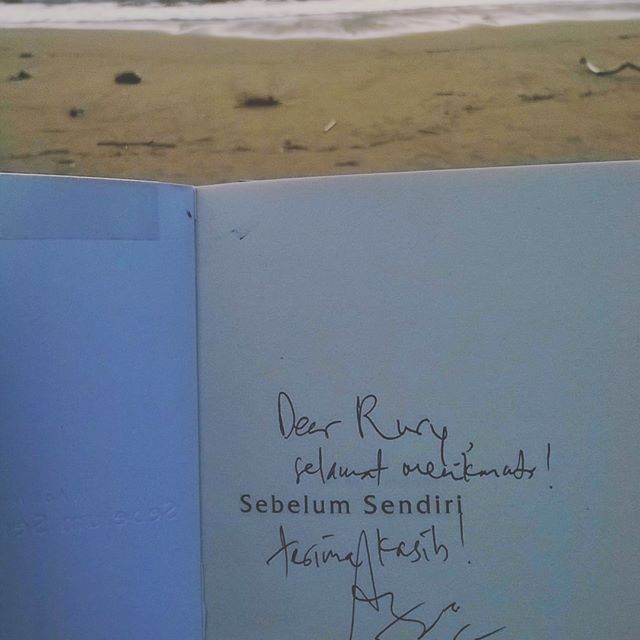 Dear Rury,
selamat menikmati!
Sebelum Sendiri
terima kasih!